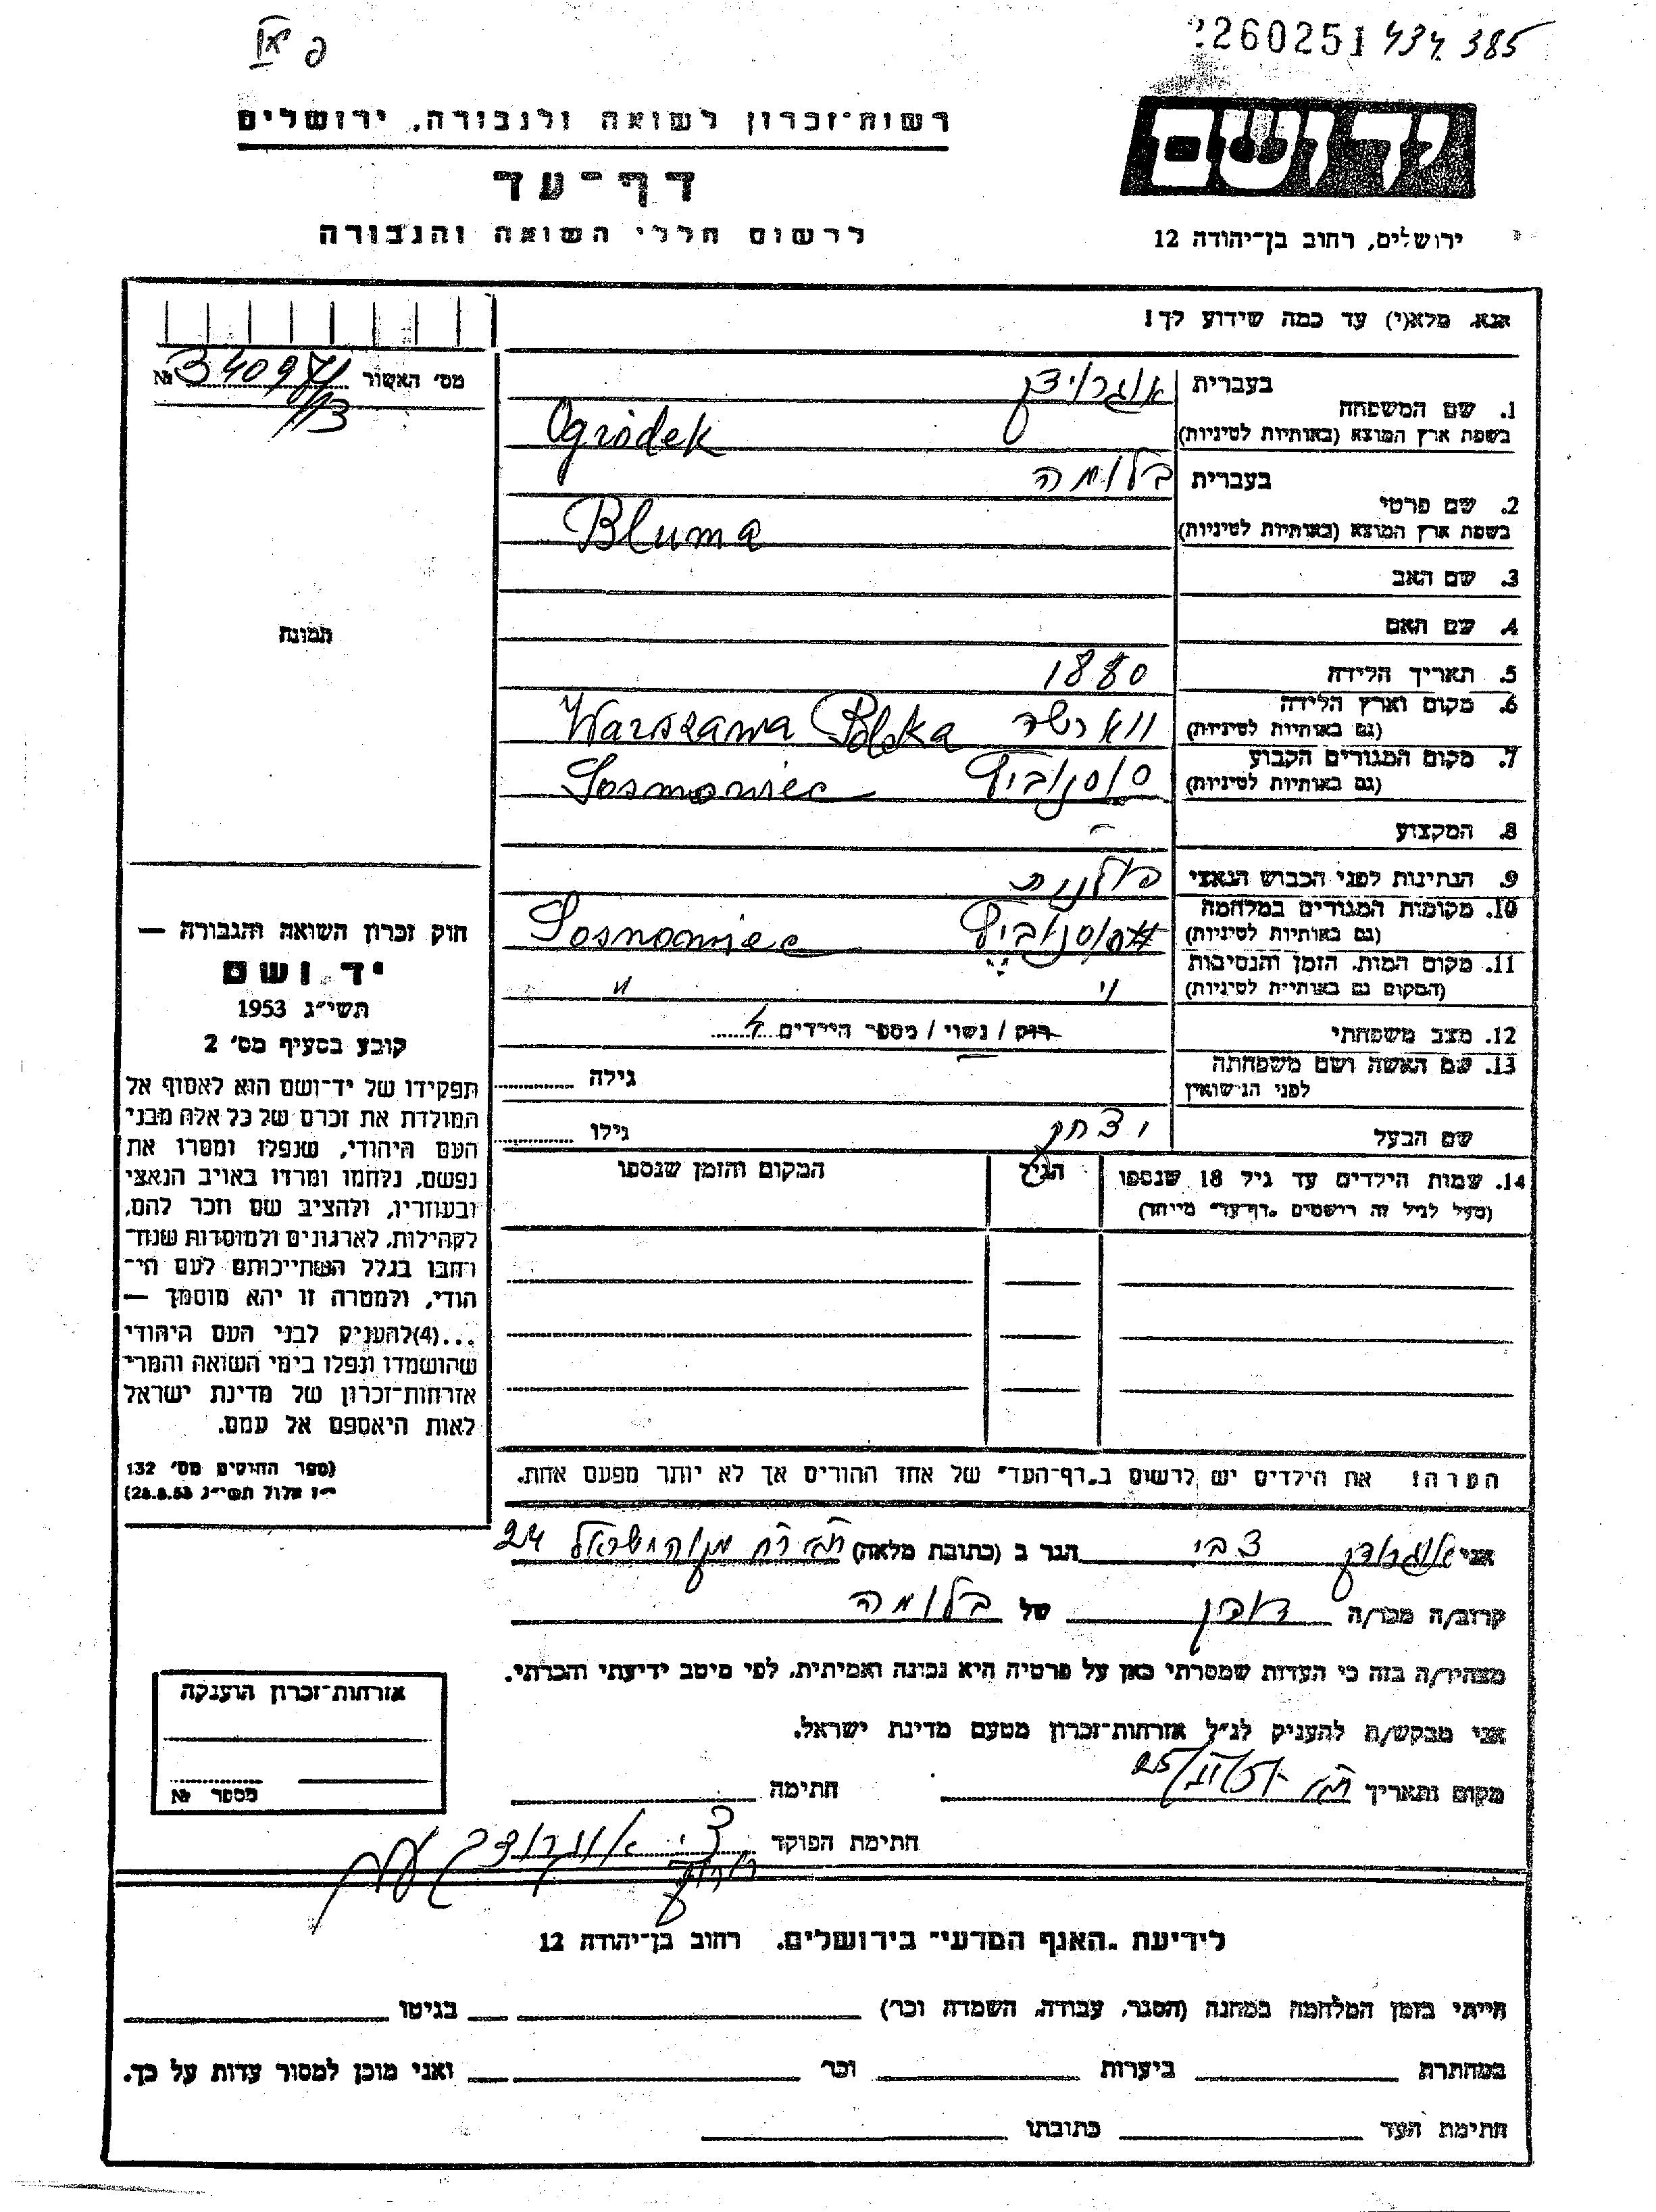 2260251 434 385
רשות־זכרון לשואה ולגבורה, ירושלים
יד ושם
דף־עד
לרשום חללי השואה והגבורה
ירושלים, רחוב בן־יהודה 12
אנא, מלא(י) עד כמה שידוע לך!
מס׳ האשור № 340971/13
1. שם המשפחה בעברית אוגרודק
בשפת ארץ המוצא (באותיות לטיניות) Ogródek
2. שם פרטי בעברית בלומה
בשפת ארץ המוצא (באותיות לטיניות) Bluma
3. שם האב
4. שם האם
תמונה
5. תאריך הלידה 1880
6. מקום וארץ הלידה
(גם באותיות לטיניות) Warszawa Polska
7. מקום המגורים הקבוע
(גם באותיות לטיניות) סוסנוביץ Sosnowiec
8. המקצוע –
9. הנתינות לפני הכבוש הנאצי פולנית
10. מקומות המגורים במלחמה
(גם באותיות לטיניות) סוסנוביץ Sosnowiec
11. מקום המות, הזמן והנסיבות
(המקום גם באותיות לטיניות) " "
12. מצב משפחתי רוק / נשוי / מספר הילדים 4
13. שם האשה ושם משפחתה
לפני הנישואין גילה
שם הבעל יצחק גילו
14. שמות הילדים עד גיל 18 שנספו הגיל המקום והזמן שנספו
(מעל לגיל זה רושמים „דף־עד" מיוחד)
חוק זכרון השואה והגבורה —
יד ושם
תשי״ג 1953
קובע בסעיף מס׳ 2
תפקידו של יד־ושם הוא לאסוף אל
המולדת את זכרם של כל אלה מבני
העם היהודי, שנפלו ומסרו את
נפשם, נלחמו ומרדו באויב הנאצי
ובעוזריו, ולהציב שם וזכר להם,
לקהילות, לארגונים ולמוסדות שנח־
רבו בגלל השתייכותם לעם הי־
הודי, ולמטרה זו יהא מוסמך —
...(4)להעניק לבני העם היהודי
שהושמדו ונפלו בימי השואה והמרי
אזרחות־זכרון של מדינת ישראל
לאות היאספם אל עמם.
(ספר החוקים מס׳ 132
י״ז אלול תשי״ג 28.8.53)
הערה! את הילדים יש לרשום ב„דף־העד" של אחד ההורים אך לא יותר מפעם אחת.
אני אוגרודק צבי הגר ב (כתובת מלאה) 24
קרוב/ה מכר/ה של בלומה
מצהיר/ה בזה כי העדות שמסרתי כאן על פרטיה היא נכונה ואמיתית, לפי מיטב ידיעתי והכרתי.
אני מבקש/ת להעניק לנ״ל אזרחות־זכרון מטעם מדינת ישראל.
מקום ותאריך חתימה
חתימת הפוקד
אזרחות־זכרון הוענקה
מספר №
לידיעת „האגף המדעי" בירושלים. רחוב בן־יהודה 12
הייתי בזמן המלחמה במחנה (הסגר, עבודה, השמדה וכו׳) בגיטו
במחתרת ביערות וכו׳ ואני מוכן למסור עדות על כך.
חתימת העד כתובתו